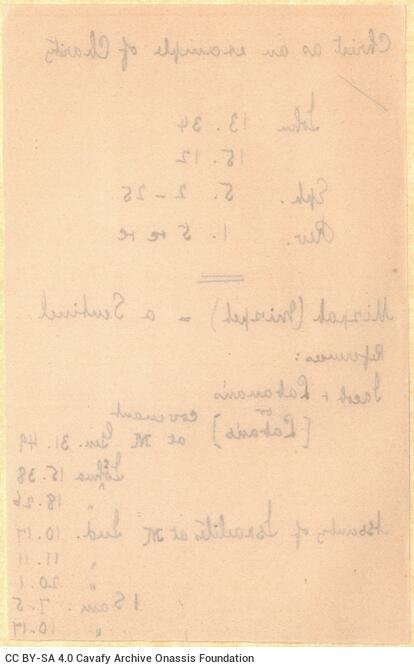 Christ as an example of Charity
John 13. 34
15. 12
Eph. 5. 2-25
Rev. 1. 5 +c +c
Mizpah (Mizpeh) = a Sentinel.
References:
Jacob + Labaman's
or
[Laban's] covenant
at M Gen. 31. 49
Joshua 15. 38
" 18. 26
Assembly of Israelites at M Jud. 10.17
" 11.11
" 20.1
1 Sam. 7.5
" 10.17
CC BY-SA 4.0 Cavafy Archive Onassis Foundation